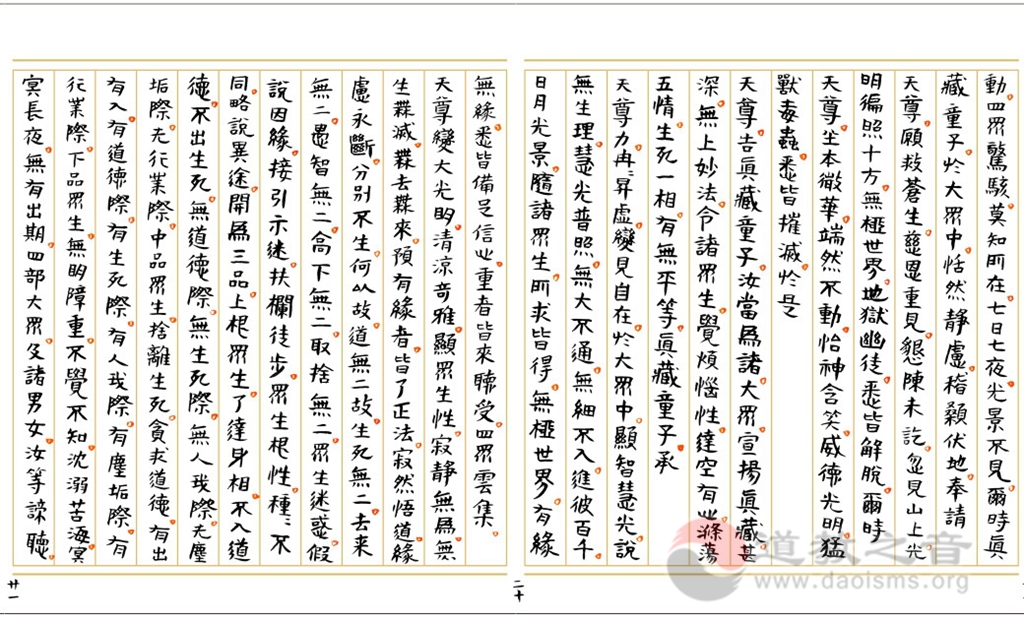 動四眾驚駭莫知所在七日七夜光景不見爾時真
藏童子於大眾中恬然靜慮稽顙伏地奉請
天尊願救蒼生慈恩重見懇陳未訖忽見山上光
明徧照十方無極世界地獄幽徒悉皆解脫爾時
天尊坐本微華端然不動怡神含笑威德光明猛
獸毒蟲悉皆摧滅於是
天尊告真藏童子汝當為諸大眾宣揚真藏甚
深無上妙法令諸眾生覺煩惱性達空有滌蕩
五情生死一相有無平等真藏童子承
天尊力冉冉昇虛變見自在於大眾中顯智慧光說
無生理慧光普照無大不通無細不入進彼百千
日月光景隨諸眾生所求皆得無極世界有緣
無緣悉皆備足信心重者皆來聽受四眾雲集
天尊變大光明清涼奇雅顯眾生性寂靜無為無
生業滅業去業來預有緣者皆了正法寂然悟道緣
慮永斷分別不生何以故道無二故生死無二去來
無二愚智無二高下無二取捨無二眾生迷惑假
說因緣接引示迷扶欄徒步眾生根性種種不
同略說異途開為三品上根眾生了達身相不入道
德不出生死無道德際無生死際無人我際无塵
垢際无行業際中品眾生捨離生死貪求道德有出
有入有道德際有生死際有人我際有塵垢際有
行業際下品眾生無明障重不覺不知沈溺苦海冥
冥長夜無有出期四部大眾及諸男女汝等諦聽
二十
廿一
道教之音
www.daoisms.org